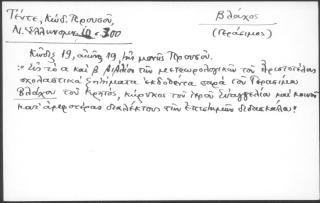 Τέντε, Κώδ. Προυσοῦ.
Λι. Ἑλληνομν. 10 = 300
Βλάχος
(Γεράσιμος)
Κῶδιξ 19, αἰῶνος 19, τῆς μονῆς Προυσοῦ.
"Εἰς τὸ α καὶ β βιβλίον τῶν μετεωρολογικῶν τοῦ Ἀριστοτέλους
σχολαστικὰ ζητήματα ἐκδοθέντα παρὰ τοῦ Γερασίμου
Βλάχου τοῦ Κρητός, κήρυκος τοῦ ἱεροῦ Εὐαγγελίου καὶ κοινοῦ
κατ' ἀμφοτέρας διαλέκτους τῶν ἐπιστημῶν διδασκάλου"